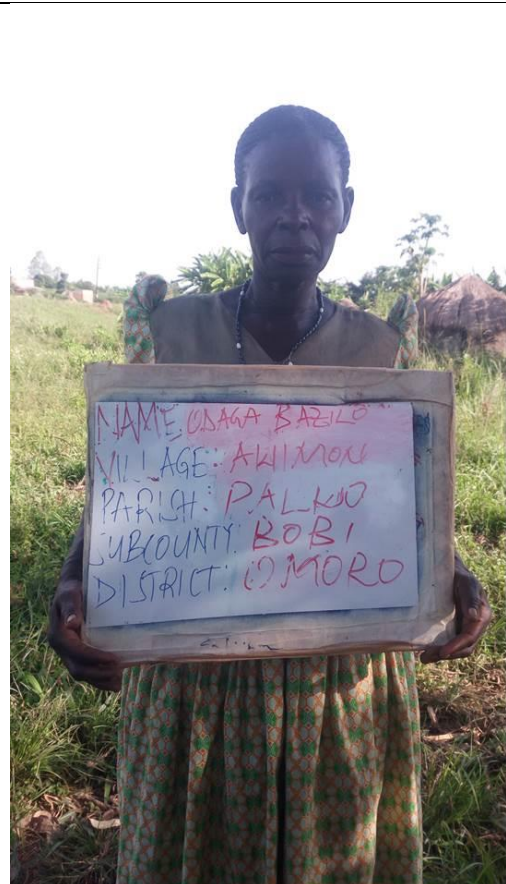 NAME: ODAGA BAZILO
VILLAGE: AWIMON
PARISH: PALWO
SUBCOUNTY: BOBI
DISTRICT: OMORO